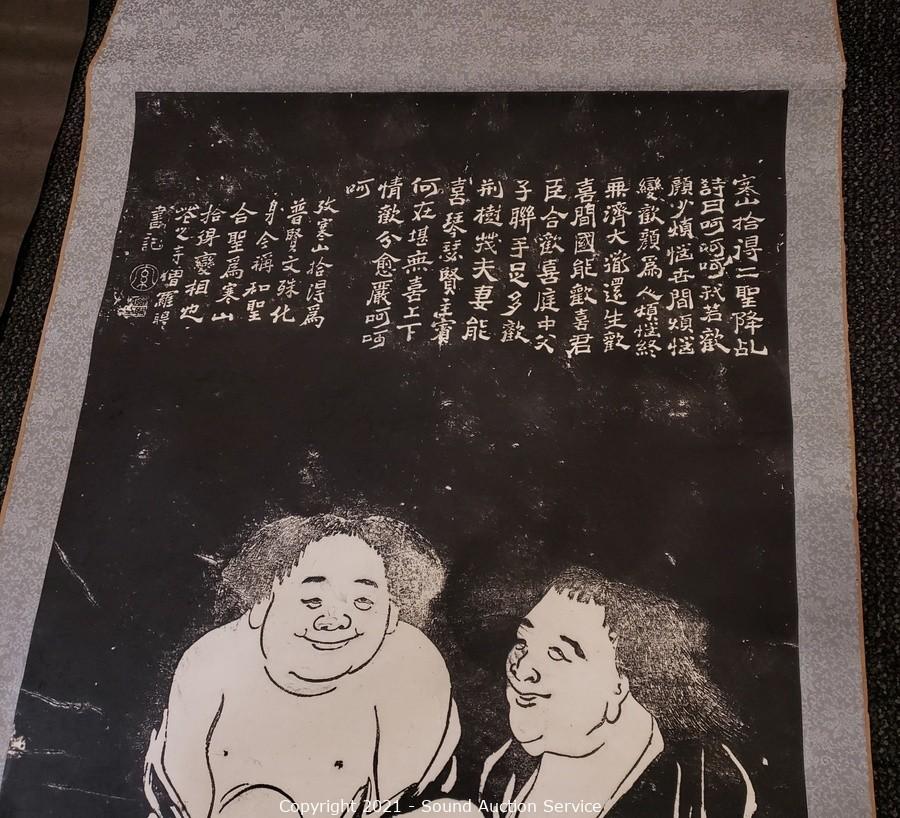 寒山拾得二聖降乩
詩曰呵呵呵我若歡
顏少煩惱世間煩惱
變歡顏爲人煩惱終
無濟大道還生歡
喜間國能歡喜君
臣合歡喜庭中父
子聯手足多歡
荆樹茂夫妻能
喜琴瑟賢主賓
何在堪無喜上下
情歡分愈嚴呵呵
呵
攷寒山拾得爲
普賢文殊化
身今稱和聖
合聖爲寒山
拾得變相也
花之寺僧羅聘
書記
Copyright 2021 - Sound Auction Service